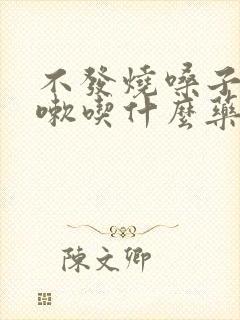 不發燒嗓子
嗽喫什麼藥
陳文卿